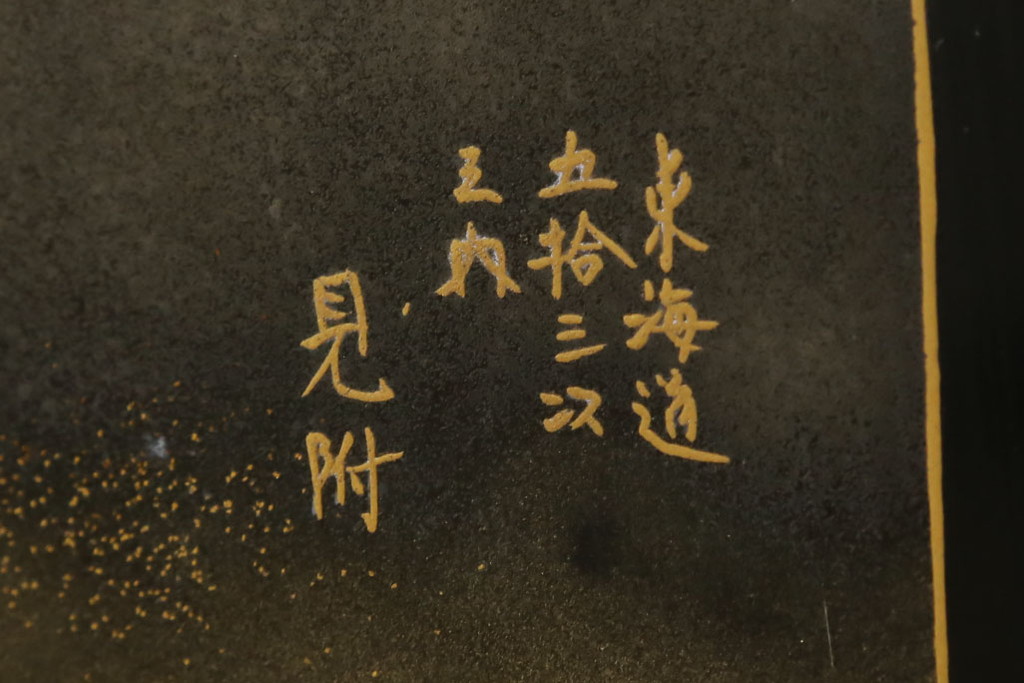 東海道
五拾三次
之内
見附